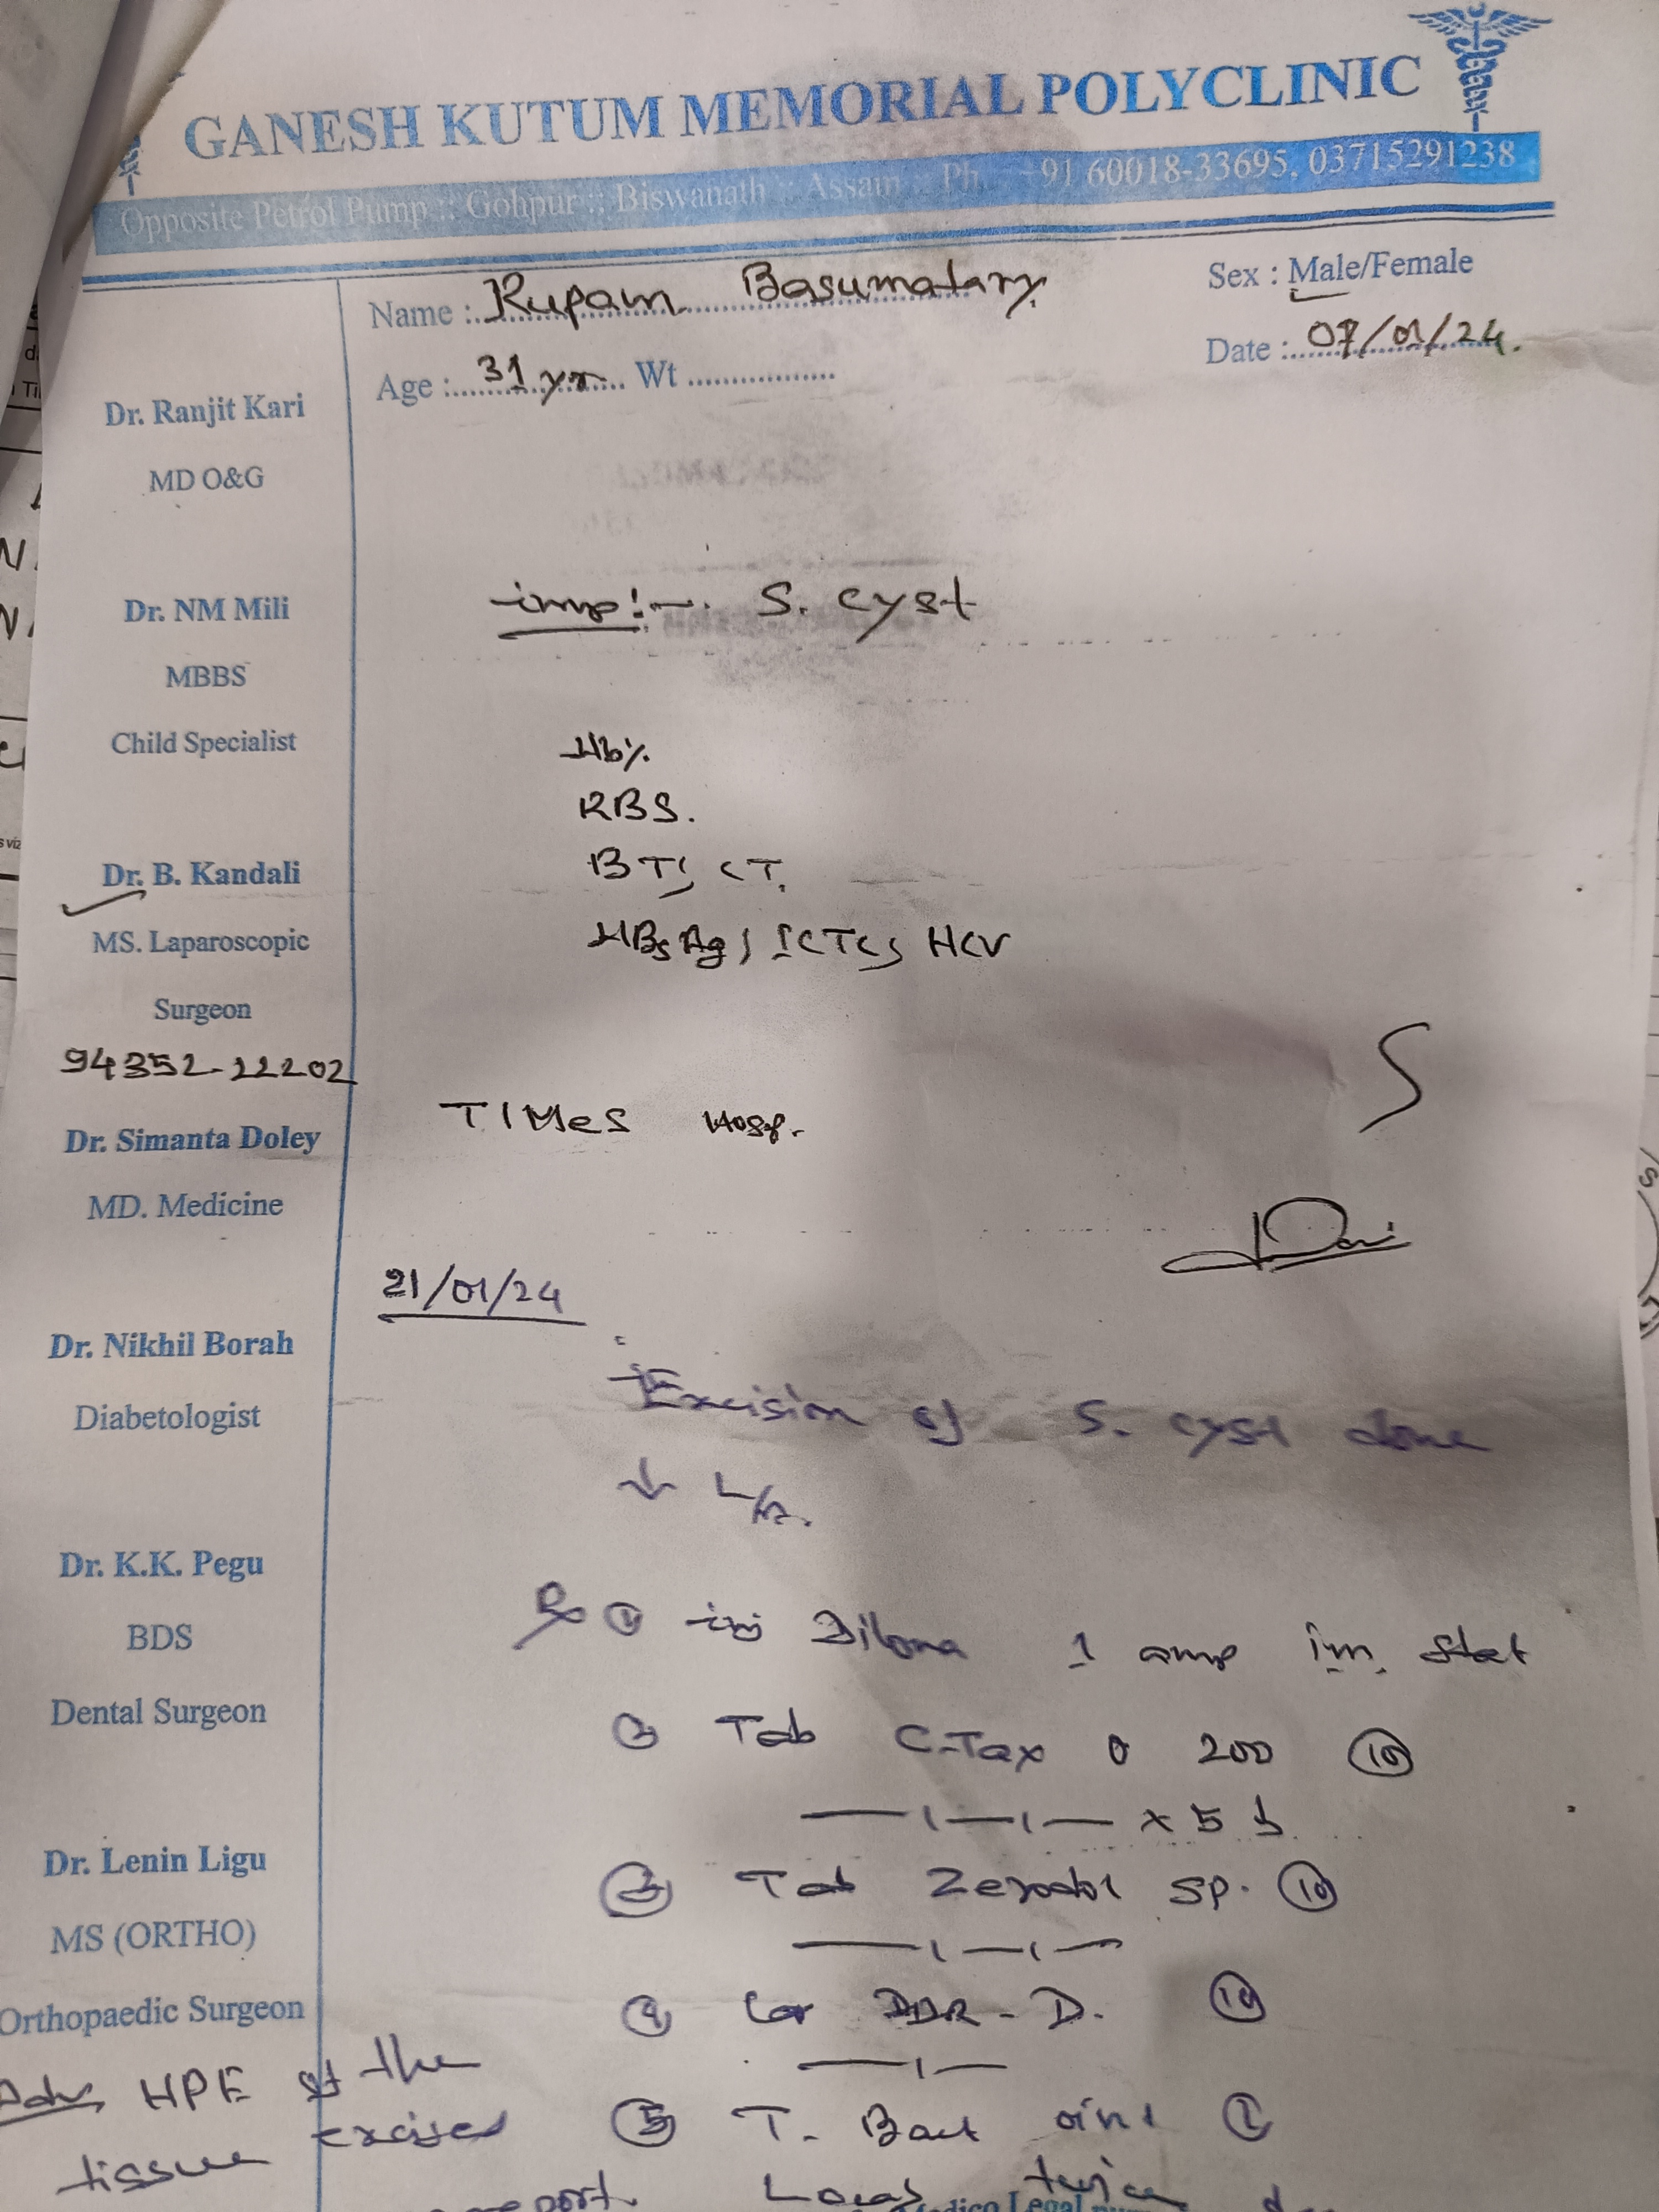 GANESH KUTUM MEMORIAL POLYCLINIC
Opposite Petrol Pump :: Gohpur :: Biswanath :: Assam :: Ph. +91 60018-33695, 03715291238
Name : Rupam Basumatary
Sex : Male/Female
Age : 31 yr Wt
Date : 07/01/24.
Dr. Ranjit Kari
MD O&G
Dr. NM Mili
MBBS
Child Specialist
Dr. B. Kandali
MS. Laparoscopic
Surgeon
94352-22202
Dr. Simanta Doley
MD. Medicine
Dr. Nikhil Borah
Diabetologist
Dr. K.K. Pegu
BDS
Dental Surgeon
Dr. Lenin Ligu
MS (ORTHO)
Orthopaedic Surgeon
Adv, HPE of the
excised
tissue
imp:-. S. cyst
Hb%
RBS.
BT, CT.
HBsAg, ICTC, HCV
TIMES Hosp.
21/01/24
Excision of S. cyst done
↓ L/A.
Rx ① inj Dilona 1 amp im. stat
② Tab C-Tax O 200 ⑩
—|—|— x 5 d
③ Tab Zerodol SP. ⑩
—|—|—
④ Cap DDR-D. ⑩
—|—
⑤ T. Bact oint ①
report. Local twice
Medico Legal